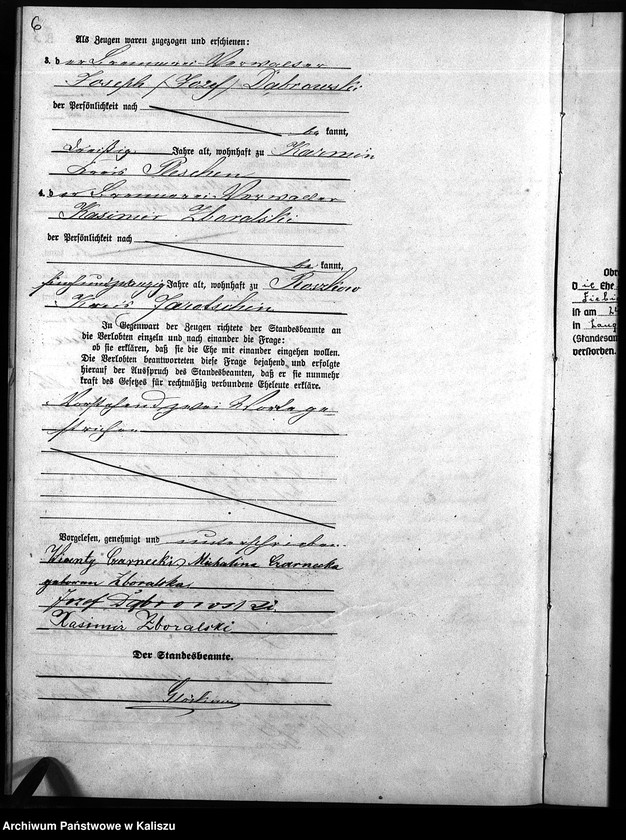 6
Als Zeugen waren zugezogen und erschienen:
3. der Brennerei-Verwalter
Joseph (Jozef) Dąbrowski
der Persönlichkeit nach
be kannt,
dreißig Jahre alt, wohnhaft zu Karmin
Kreis Pleschen
4. der Brennerei-Verwalter
Kasimir Zboralski
der Persönlichkeit nach
be kannt,
fünfundzwanzig Jahre alt, wohnhaft zu Roszkow
Kreis Jarotschin
In Gegenwart der Zeugen richtete der Standesbeamte an
die Verlobten einzeln und nach einander die Frage:
ob sie erklären, daß sie die Ehe mit einander eingehen wollen.
Die Verlobten beantworteten diese Frage bejahend und erfolgte
hierauf der Ausspruch des Standesbeamten, daß er sie nunmehr
kraft des Gesetzes für rechtmäßig verbundene Eheleute erkläre.
Vorstehend zwei Worte ge
strichen
Vorgelesen, genehmigt und unterschrieben
Wicenty Czarnecki, Michalina Czarnecka
geboren Zboralska
Jozef Dąbrowski
Kasimir Zboralski
Der Standesbeamte.
Obr
Die Ehe
ist am
in
(Standesam
verstorben.
Archiwum Państwowe w Kaliszu